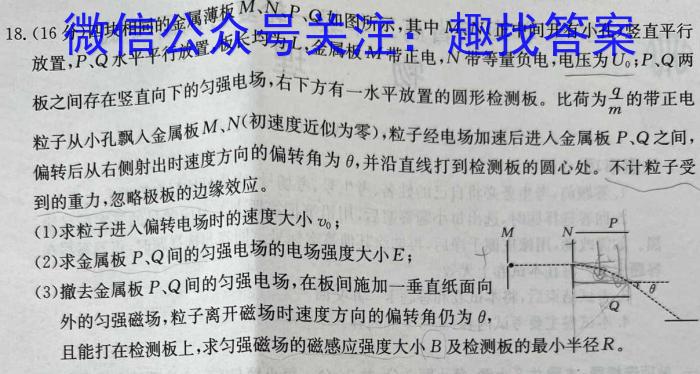 微信公众号关注：趣找答案
18.(16分)四块相同的金属薄板M、N、P、Q如图所示,其中M、N正中间开有小孔,竖直平行
放置,P、Q水平平行放置,板长均为L,金属板M带正电,N带等量负电,电压为U₀;P、Q两
板之间存在竖直向下的匀强电场,右下方有一水平放置的圆形检测板。比荷为q/m的带正电
粒子从小孔飘入金属板M、N(初速度近似为零),粒子经电场加速后进入金属板P、Q之间,
偏转后从右侧射出时速度方向的偏转角为θ,并沿直线打到检测板的圆心处。不计粒子受
到的重力,忽略极板的边缘效应。
(1)求粒子进入偏转电场时的速度大小v₀;
(2)求金属板P、Q间的匀强电场的电场强度大小E;
(3)撤去金属板P、Q间的匀强电场,在板间施加一垂直纸面向
外的匀强磁场,粒子离开磁场时速度方向的偏转角仍为θ,
且能打在检测板上,求匀强磁场的磁感应强度大小B及检测板的最小半径R。
M N P
θ
Q